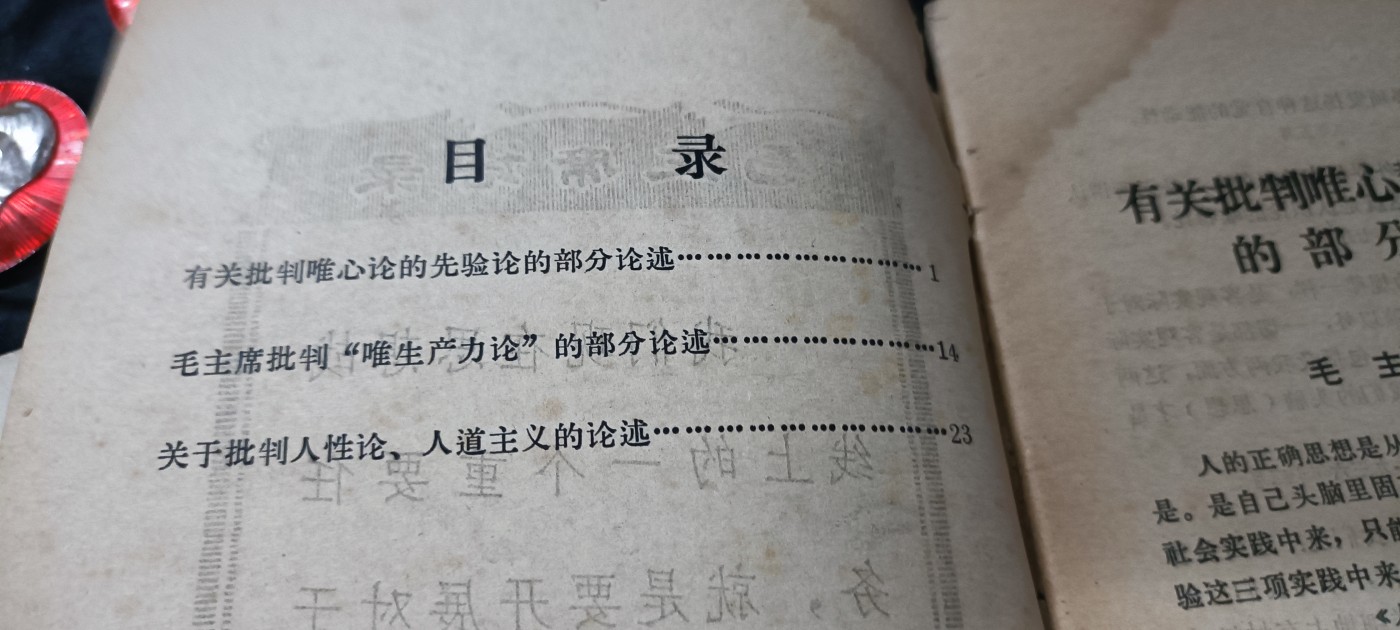 目 录
有关批判唯心论的先验论的部分论述……………………1
毛主席批判“唯生产力论”的部分论述……………………14
关于批判人性论、人道主义的论述…………………………23
有关批判唯心
的部分
毛主
人的正确思想是从
是。是自己头脑里固
社会实践中来，只能
验这三项实践中来